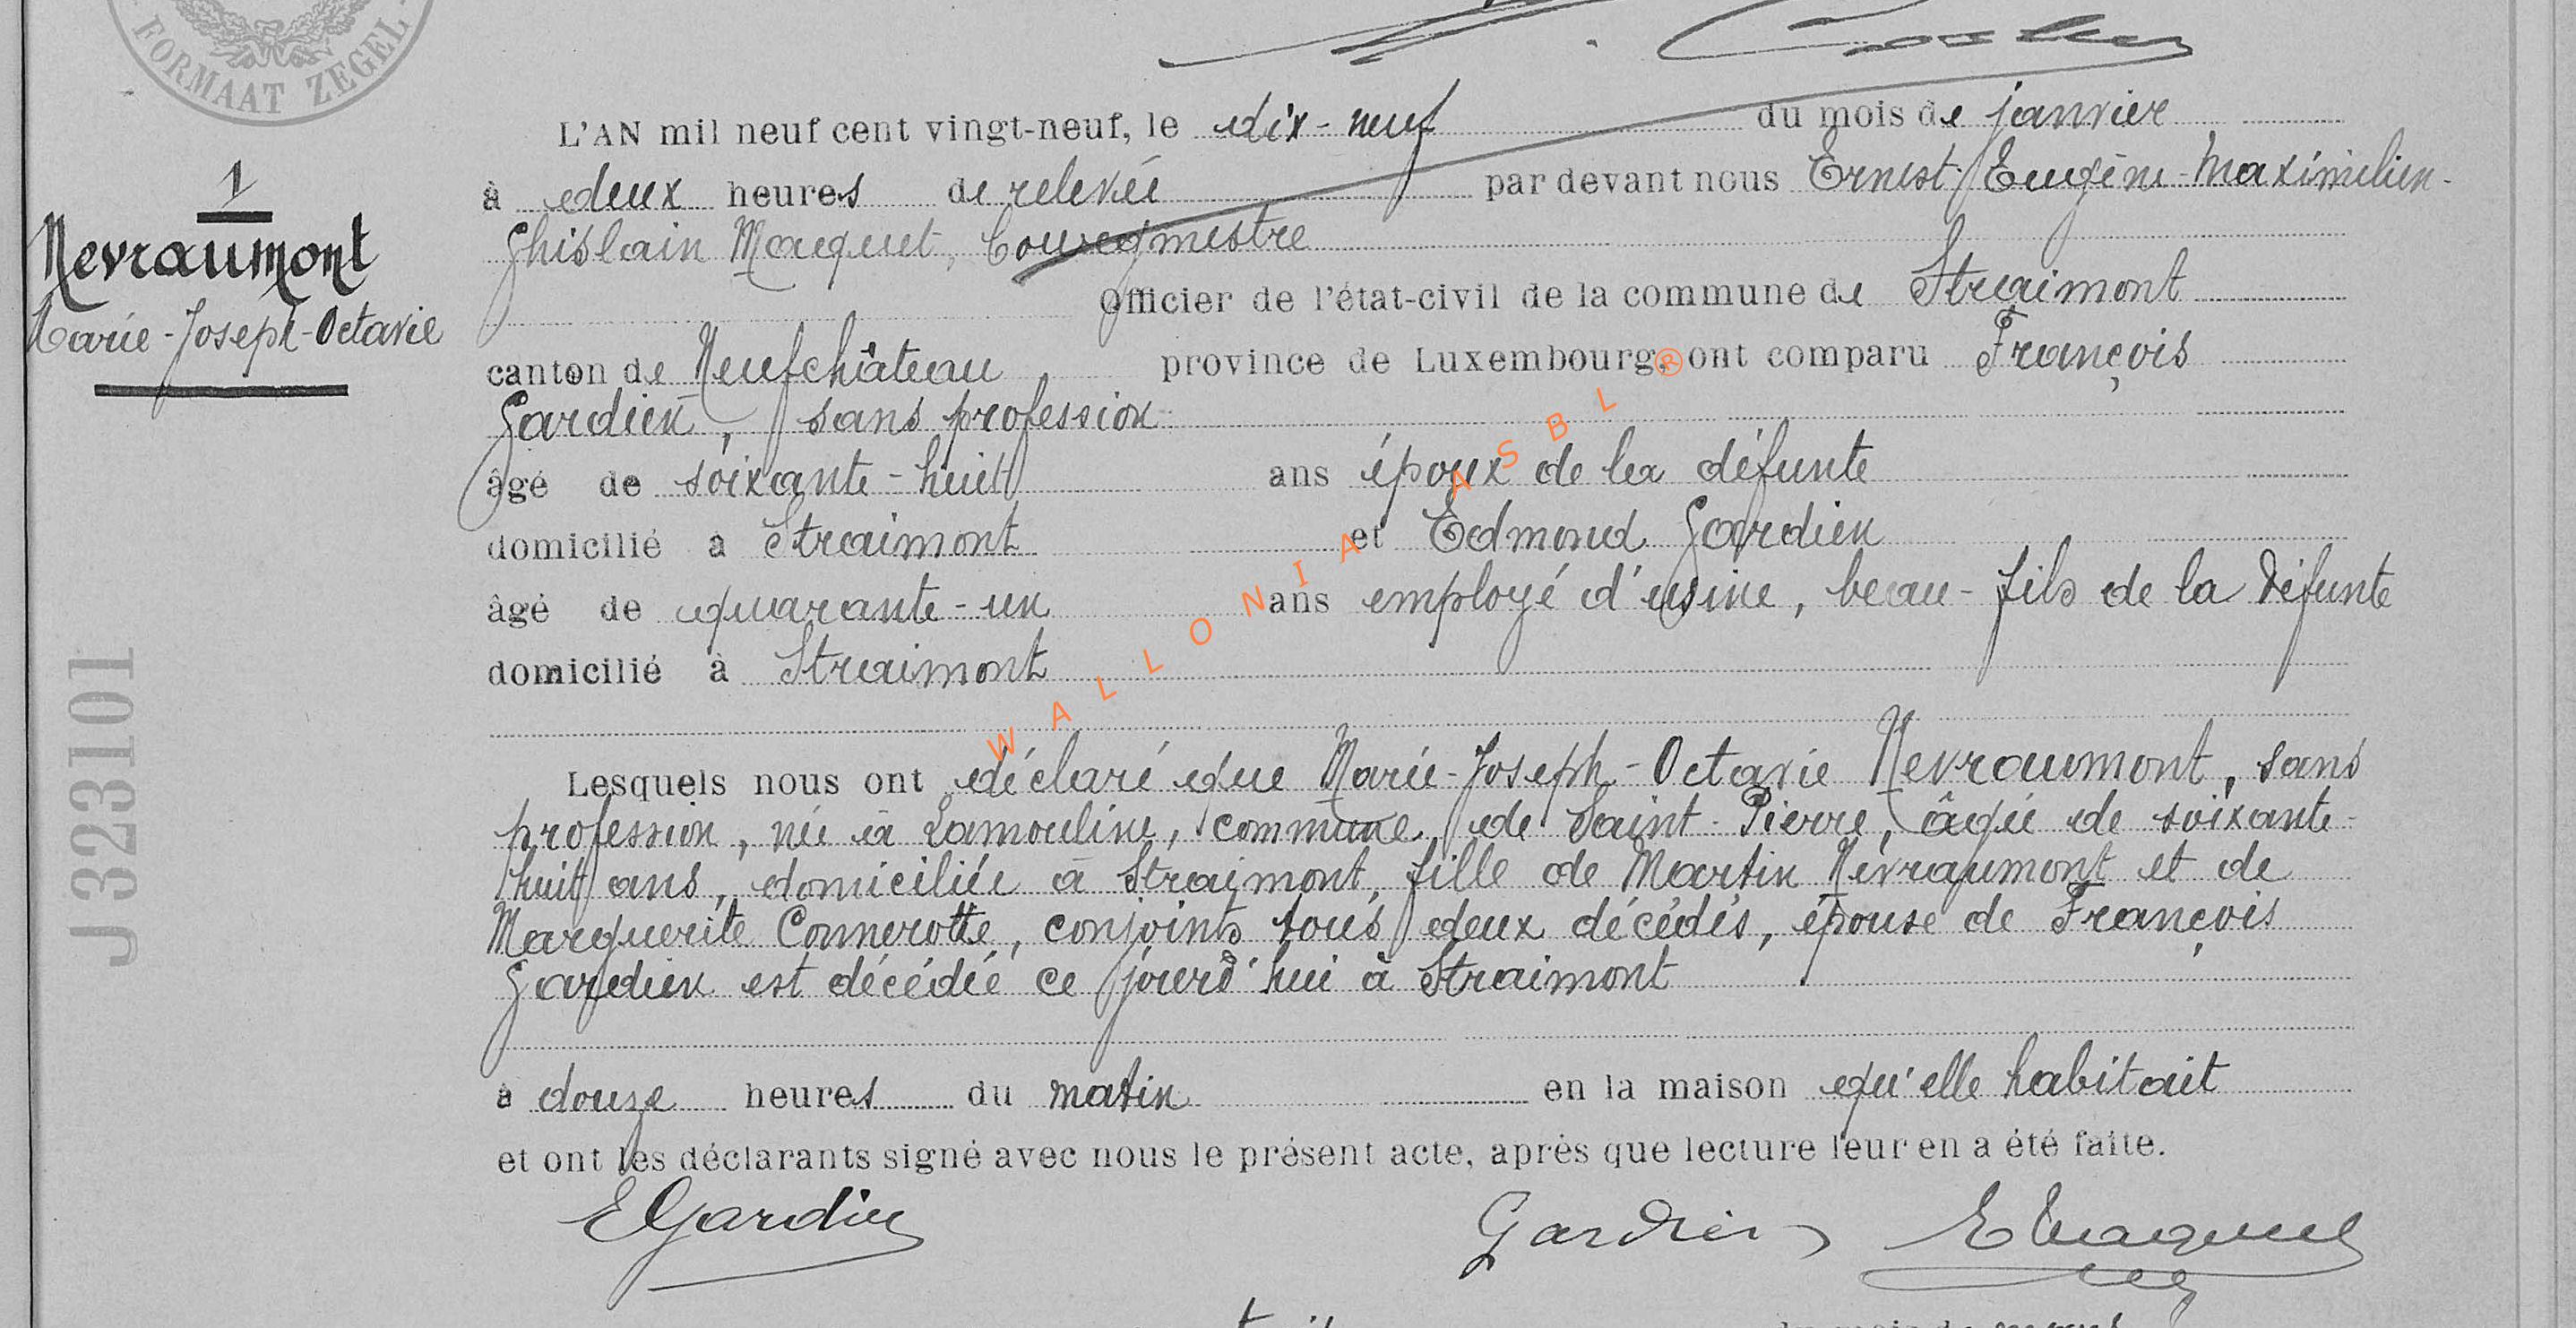 FORMAAT ZEGEL
L'AN mil neuf cent vingt-neuf, le dix-neuf du mois de janvier
à deux heures de relevée par devant nous Ernest-Eugène-Maximilien-
Ghislain Maquet, Bourgmestre
Officier de l'état-civil de la commune de Straimont
canton de Neufchâteau province de Luxembourg, ont comparu François
Gardien, sans profession
âgé de soixante-huit ans époux de la défunte
domicilié à Straimont et Edmond Gardien
âgé de quarante-un ans employé d'usine, beau-fils de la défunte
domicilié à Straimont
Lesquels nous ont déclaré que Marie-Joseph-Octavie Nevraumont, sans
profession, née à Lamouline, commune de Saint-Pierre, âgée de soixante-
huit ans, domiciliée à Straimont, fille de Martin Névraumont et de
Marguerite Connerotte, conjoints tous deux décédés, épouse de François
Gardien est décédée ce jourd'hui à Straimont
à douze heures du matin en la maison qu'elle habitait
et ont les déclarants signé avec nous le présent acte, après que lecture leur en a été faite.
EGardien Gardien EMaquet
1
Nevraumont
Marie-Joseph-Octavie
J 323101
WALLONIA ASBL ®